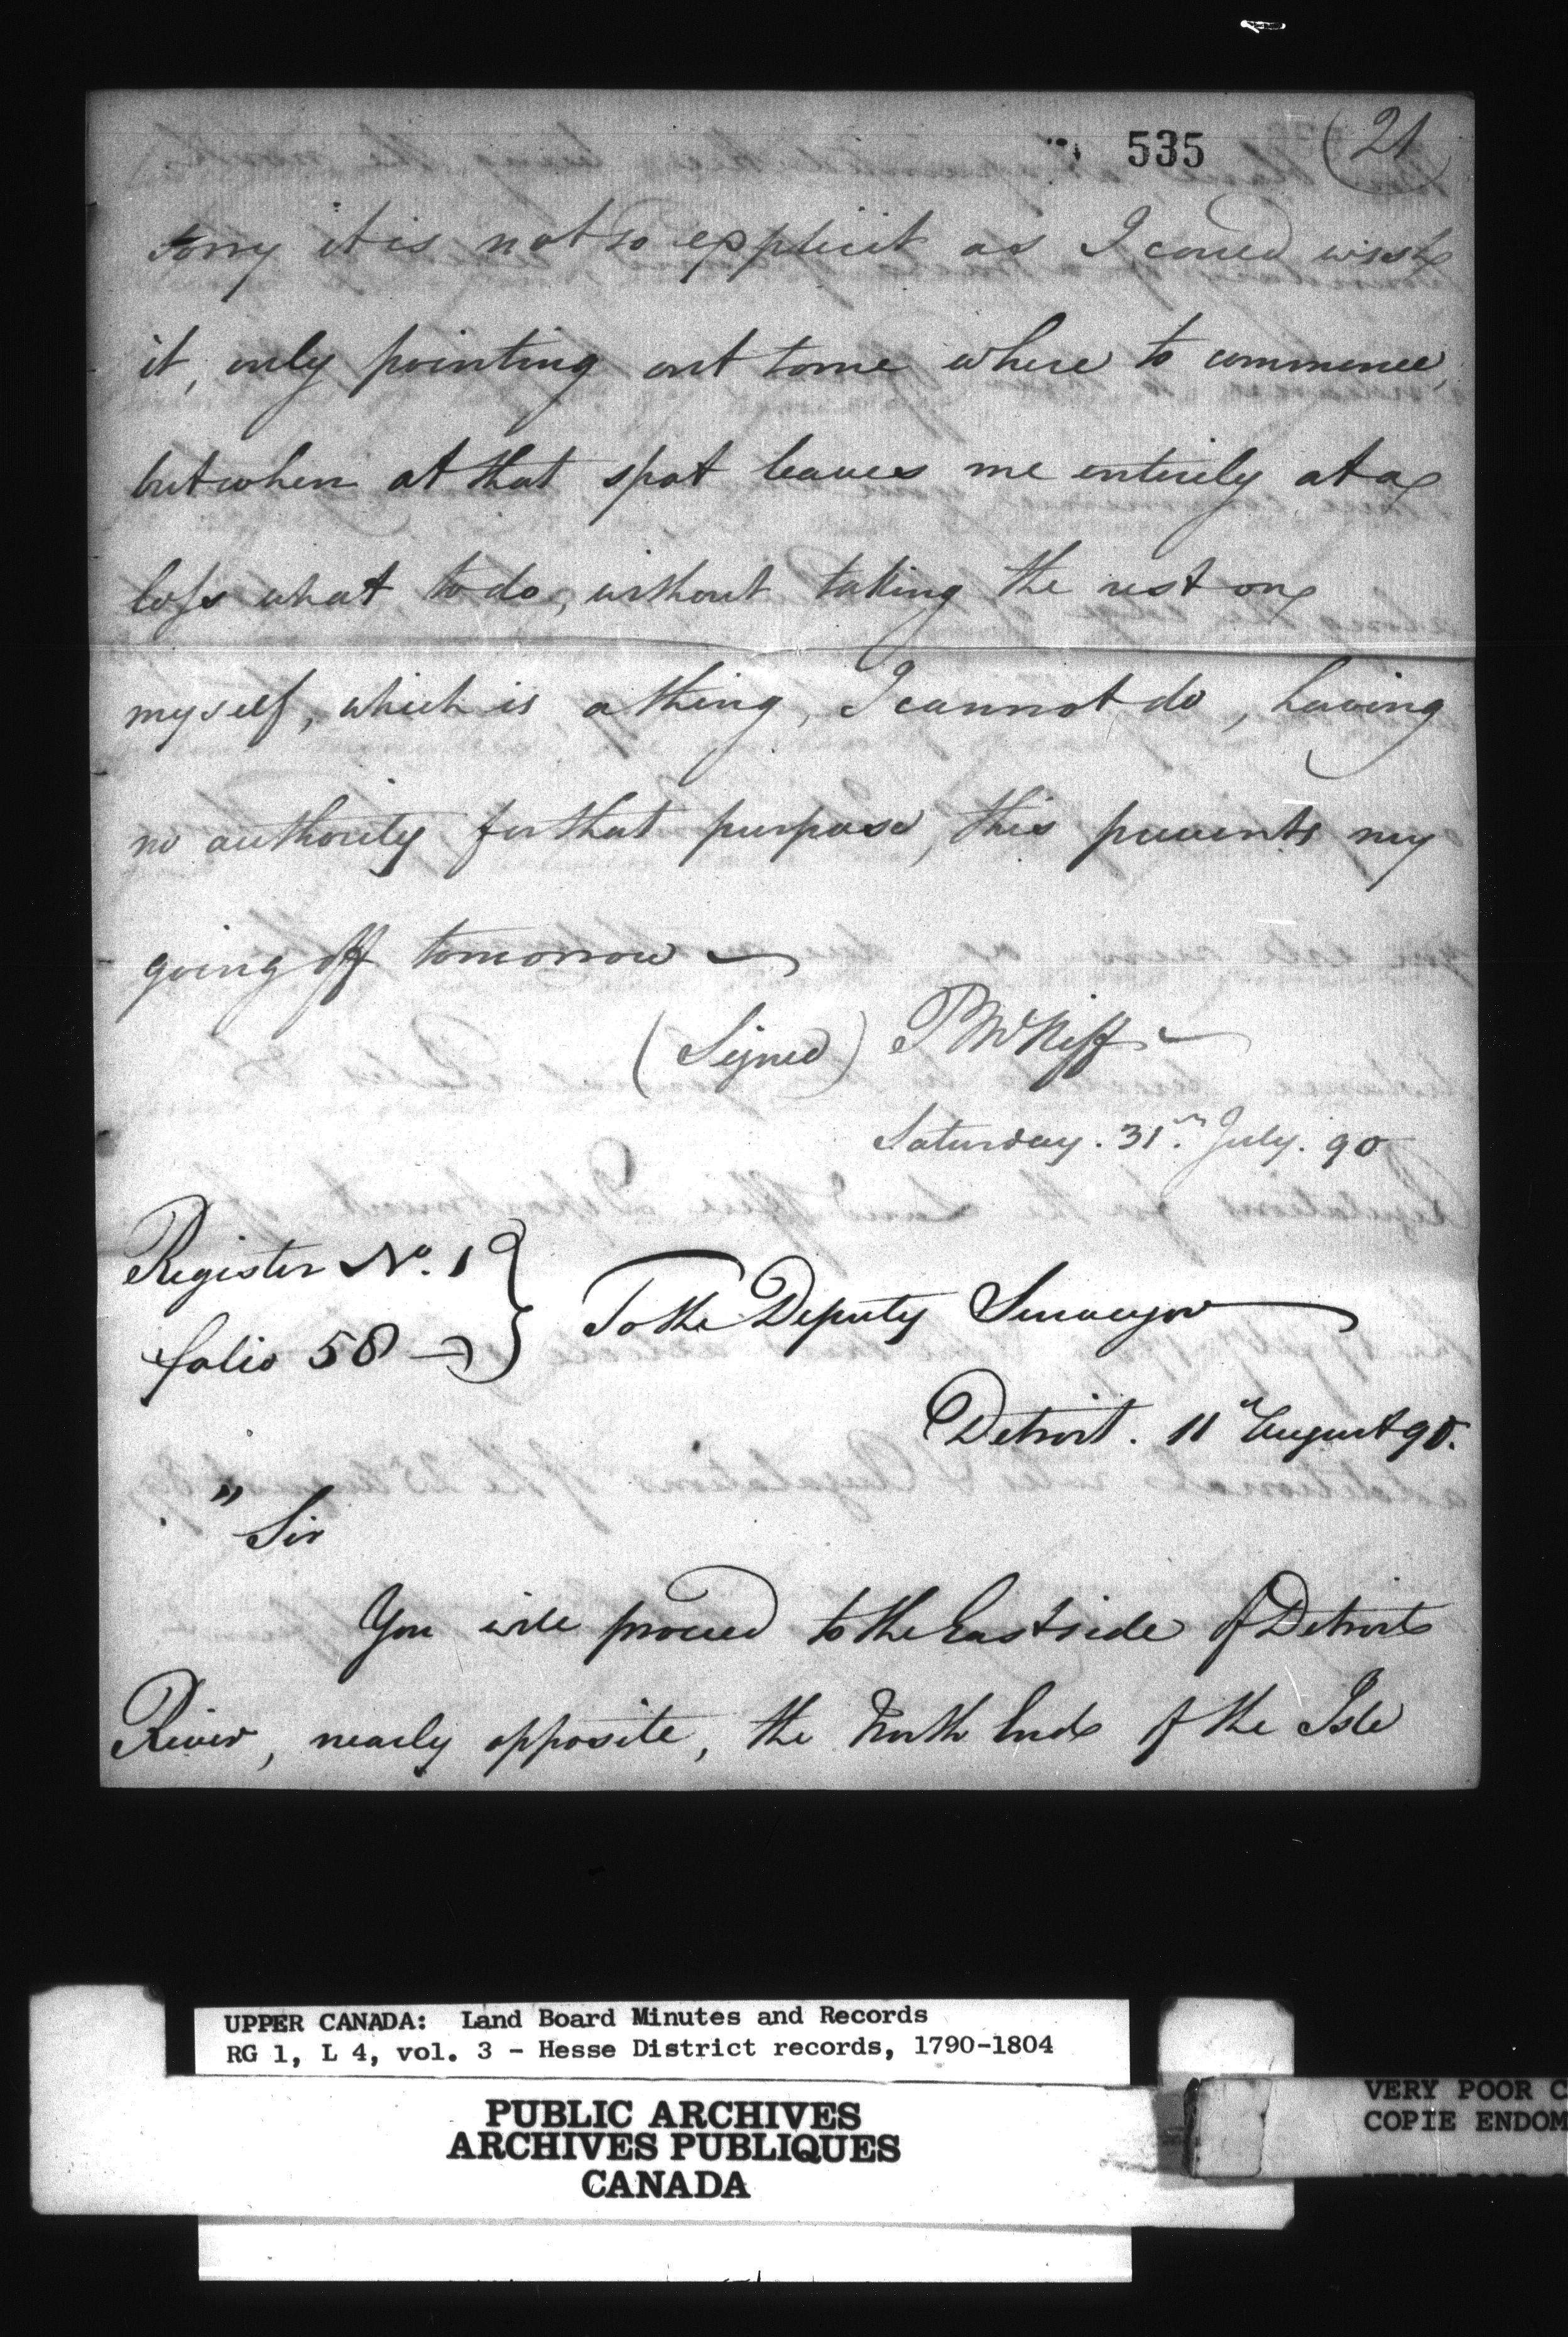 535
(21
sorry it is not so explicit as I coued wish
it, only pointing out to me where to commence,
but when at that spot leaves me entirely at a
loss what to do, without taking the rest on
myself, which is a thing, I cannot do, having
no authority for that purpose, this prevents my
going off tomorrow
(Signed) P McNiff
Saturday. 31st July. 90
Register No. 1
folio 58
To the Deputy Surveyor
Detroit. 11th August 90.
" Sir
You will proceed to the East side of Detroit
River, nearly opposite, the North End of the Isle
UPPER CANADA: Land Board Minutes and Records
RG 1, L 4, vol. 3 - Hesse District records, 1790-1804
PUBLIC ARCHIVES
ARCHIVES PUBLIQUES
CANADA
VERY POOR C
COPIE ENDOM